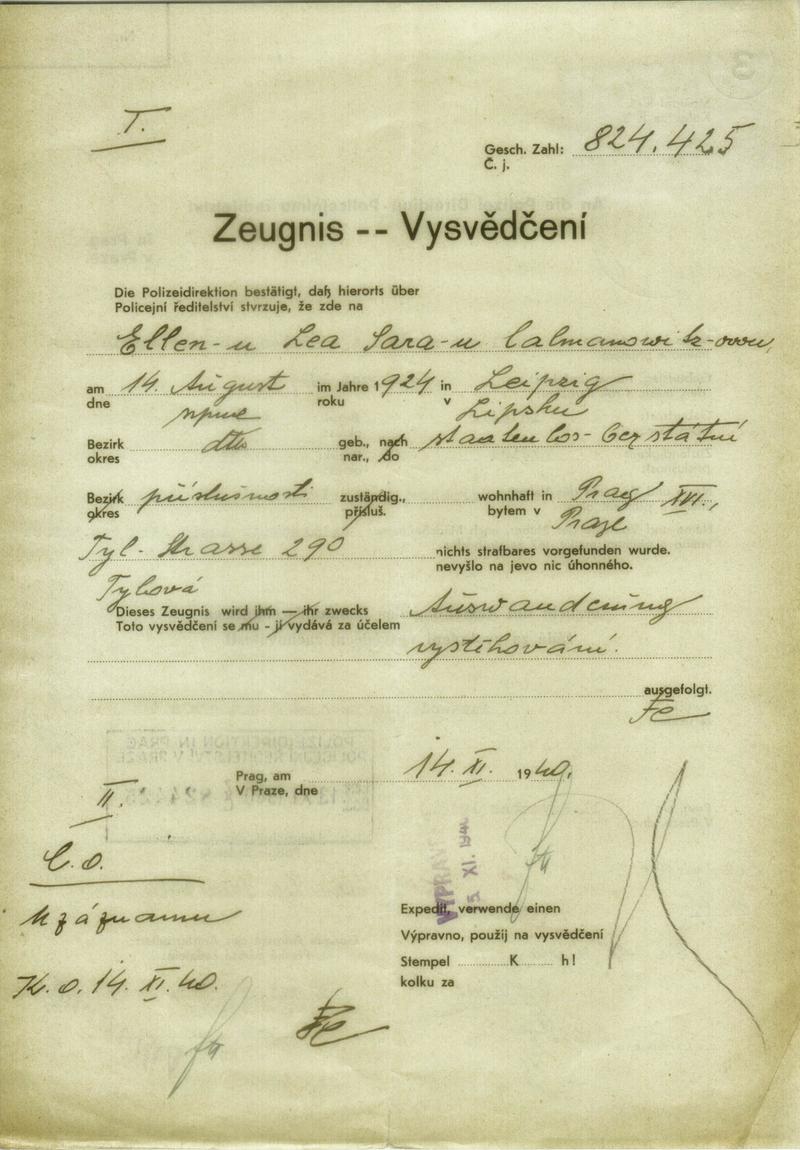 I.
Gesch. Zahl: 824.425
Č. j.
Zeugnis -- Vysvědčení
Die Polizeidirektion bestätigt, daß hierorts über
Policejní ředitelství stvrzuje, že zde na
Ellen-u Lea Sara-u Calmanowitz-ovou,
am 14. August im Jahre 1924 in Leipzig
dne srpna roku v Lipsku
Bezirk dto geb., nach staatenlos - bez státní
okres nar., do
Bezirk příslušnosti zuständig., wohnhaft in Prag XVI.,
okres přísluš. bytem v Praze
Tyl-Strasse 290 nichts strafbares vorgefunden wurde.
nevyšlo na jevo nic úhonného.
Tylová
Dieses Zeugnis wird ihm — ihr zwecks Auswanderung
Toto vysvědčení se mu - jí vydává za účelem
vystěhování.
ausgefolgt.
Fe
Prag, am 14. XI. 1940.
V Praze, dne
II.
C.o.
K záznamu
K.o. 14. XI. 40.
Fe
XI. 1940
Expedit, verwende einen
Výpravno, použij na vysvědčení
Stempel K h!
kolku za